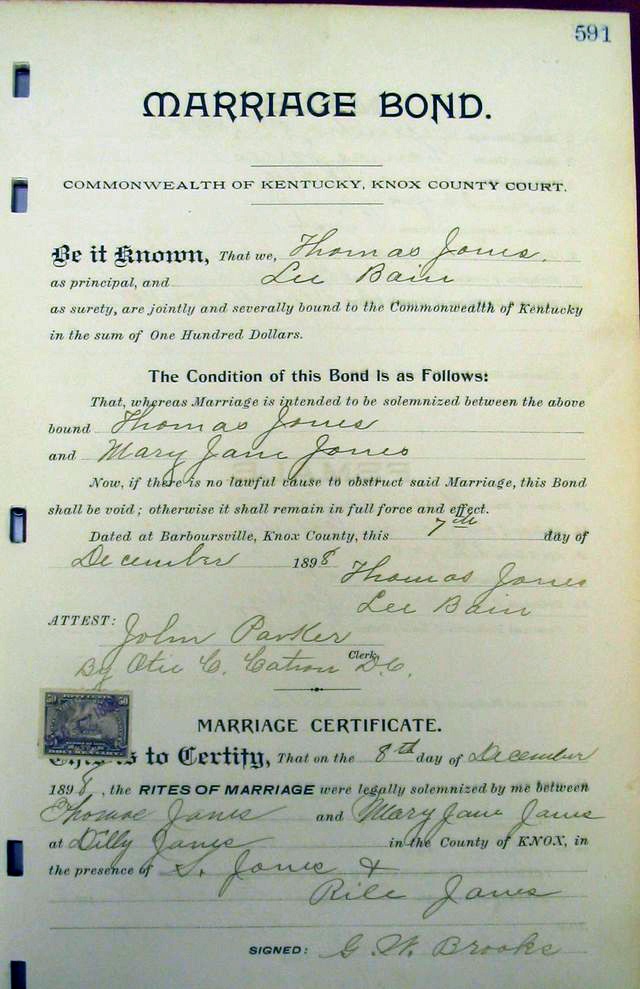 591
MARRIAGE BOND.
COMMONWEALTH OF KENTUCKY, KNOX COUNTY COURT.
Be it Known, That we, Thomas Jones,
as principal, and Lee Bain
as surety, are jointly and severally bound to the Commonwealth of Kentucky
in the sum of One Hundred Dollars.
The Condition of this Bond Is as Follows:
That, whereas Marriage is intended to be solemnized between the above
bound Thomas Jones
and Mary Jane Jones
Now, if there is no lawful cause to obstruct said Marriage, this Bond
shall be void; otherwise it shall remain in full force and effect.
Dated at Barboursville, Knox County, this 7th day of
December 1898
Thomas Jones
Lee Bain
ATTEST: John Parker
Clerk
By Otie C. Catron D.C.
MARRIAGE CERTIFICATE.
This is to Certify, That on the 8th day of December
1898, the RITES OF MARRIAGE were legally solemnized by me between
Thomas Jones and Mary Jane Jones
at Dilly Jones in the County of KNOX, in
the presence of S. Jones &
Rile Jones
SIGNED: G. W. Brooks